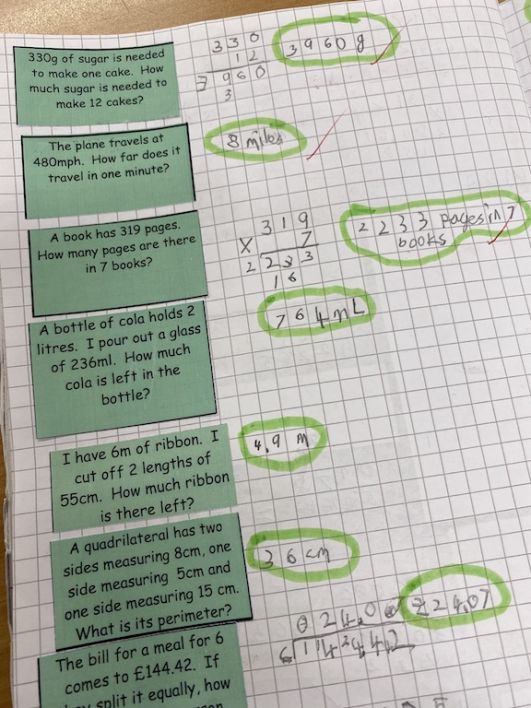 330g of sugar is needed
to make one cake. How
much sugar is needed to
make 12 cakes?
330
12
3960
3
3960g
The plane travels at
480mph. How far does it
travel in one minute?
8 miles
A book has 319 pages.
How many pages are there
in 7 books?
319
X 7
2233
16
2233 pages in 7
books
A bottle of cola holds 2
litres. I pour out a glass
of 236ml. How much
cola is left in the
bottle?
764mL
I have 6m of ribbon. I
cut off 2 lengths of
55cm. How much ribbon
is there left?
4.9 m
A quadrilateral has two
sides measuring 8cm, one
side measuring 5cm and
one side measuring 15 cm.
What is its perimeter?
36cm
The bill for a meal for 6
comes to £144.42. If
split it equally, how
024.0
£24.07